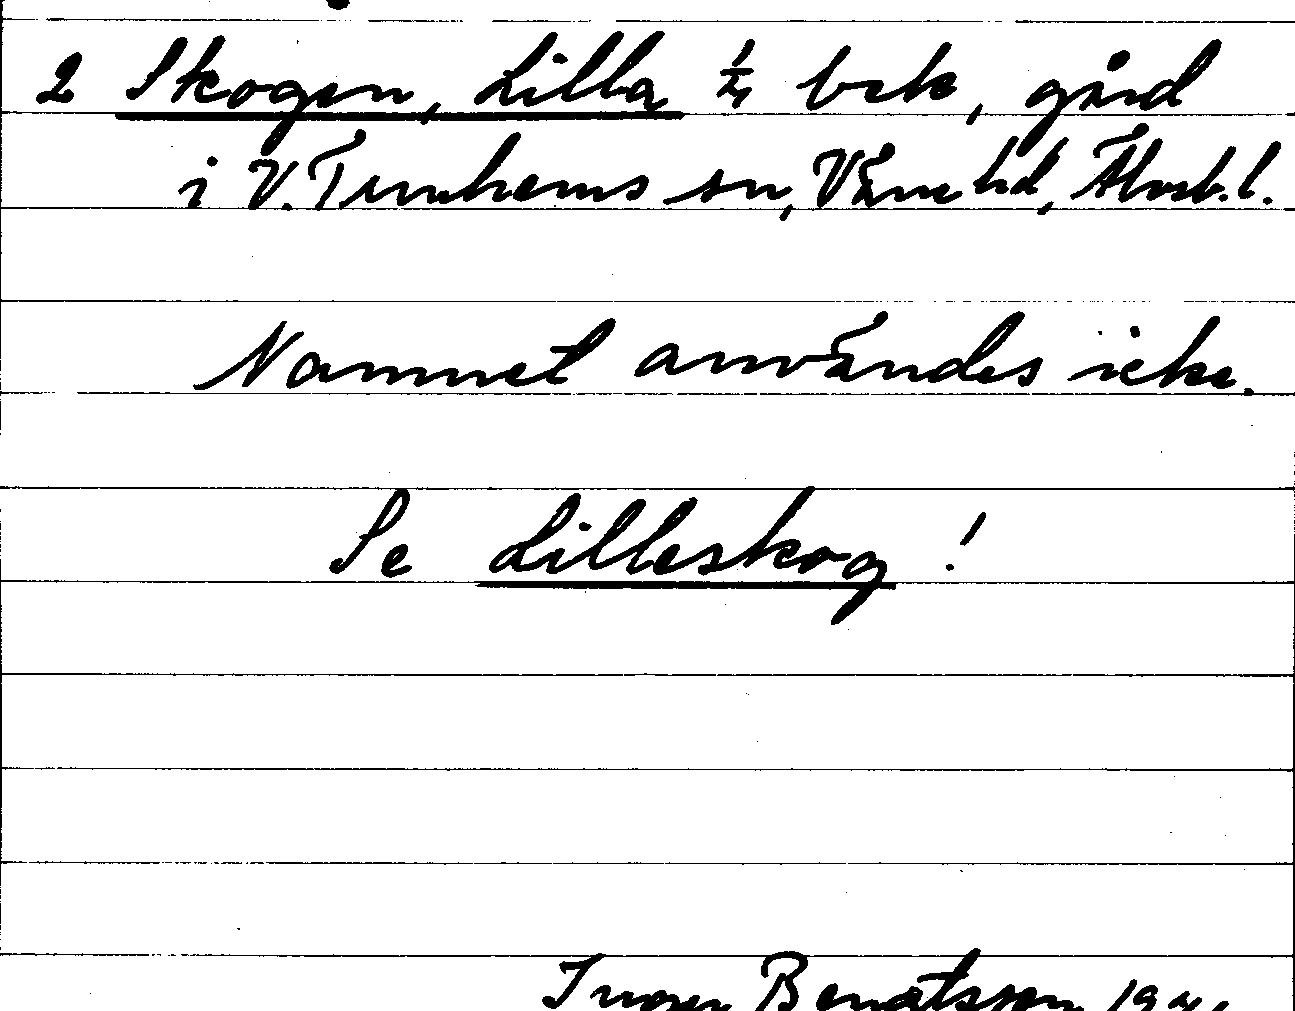 2 Skogen, Lilla 1/4 bsk, gård
i V. Tunhems sn, Väne hd, Älvsb. l.
Namnet användes icke.
Se Lilleskog!
Bengtsson